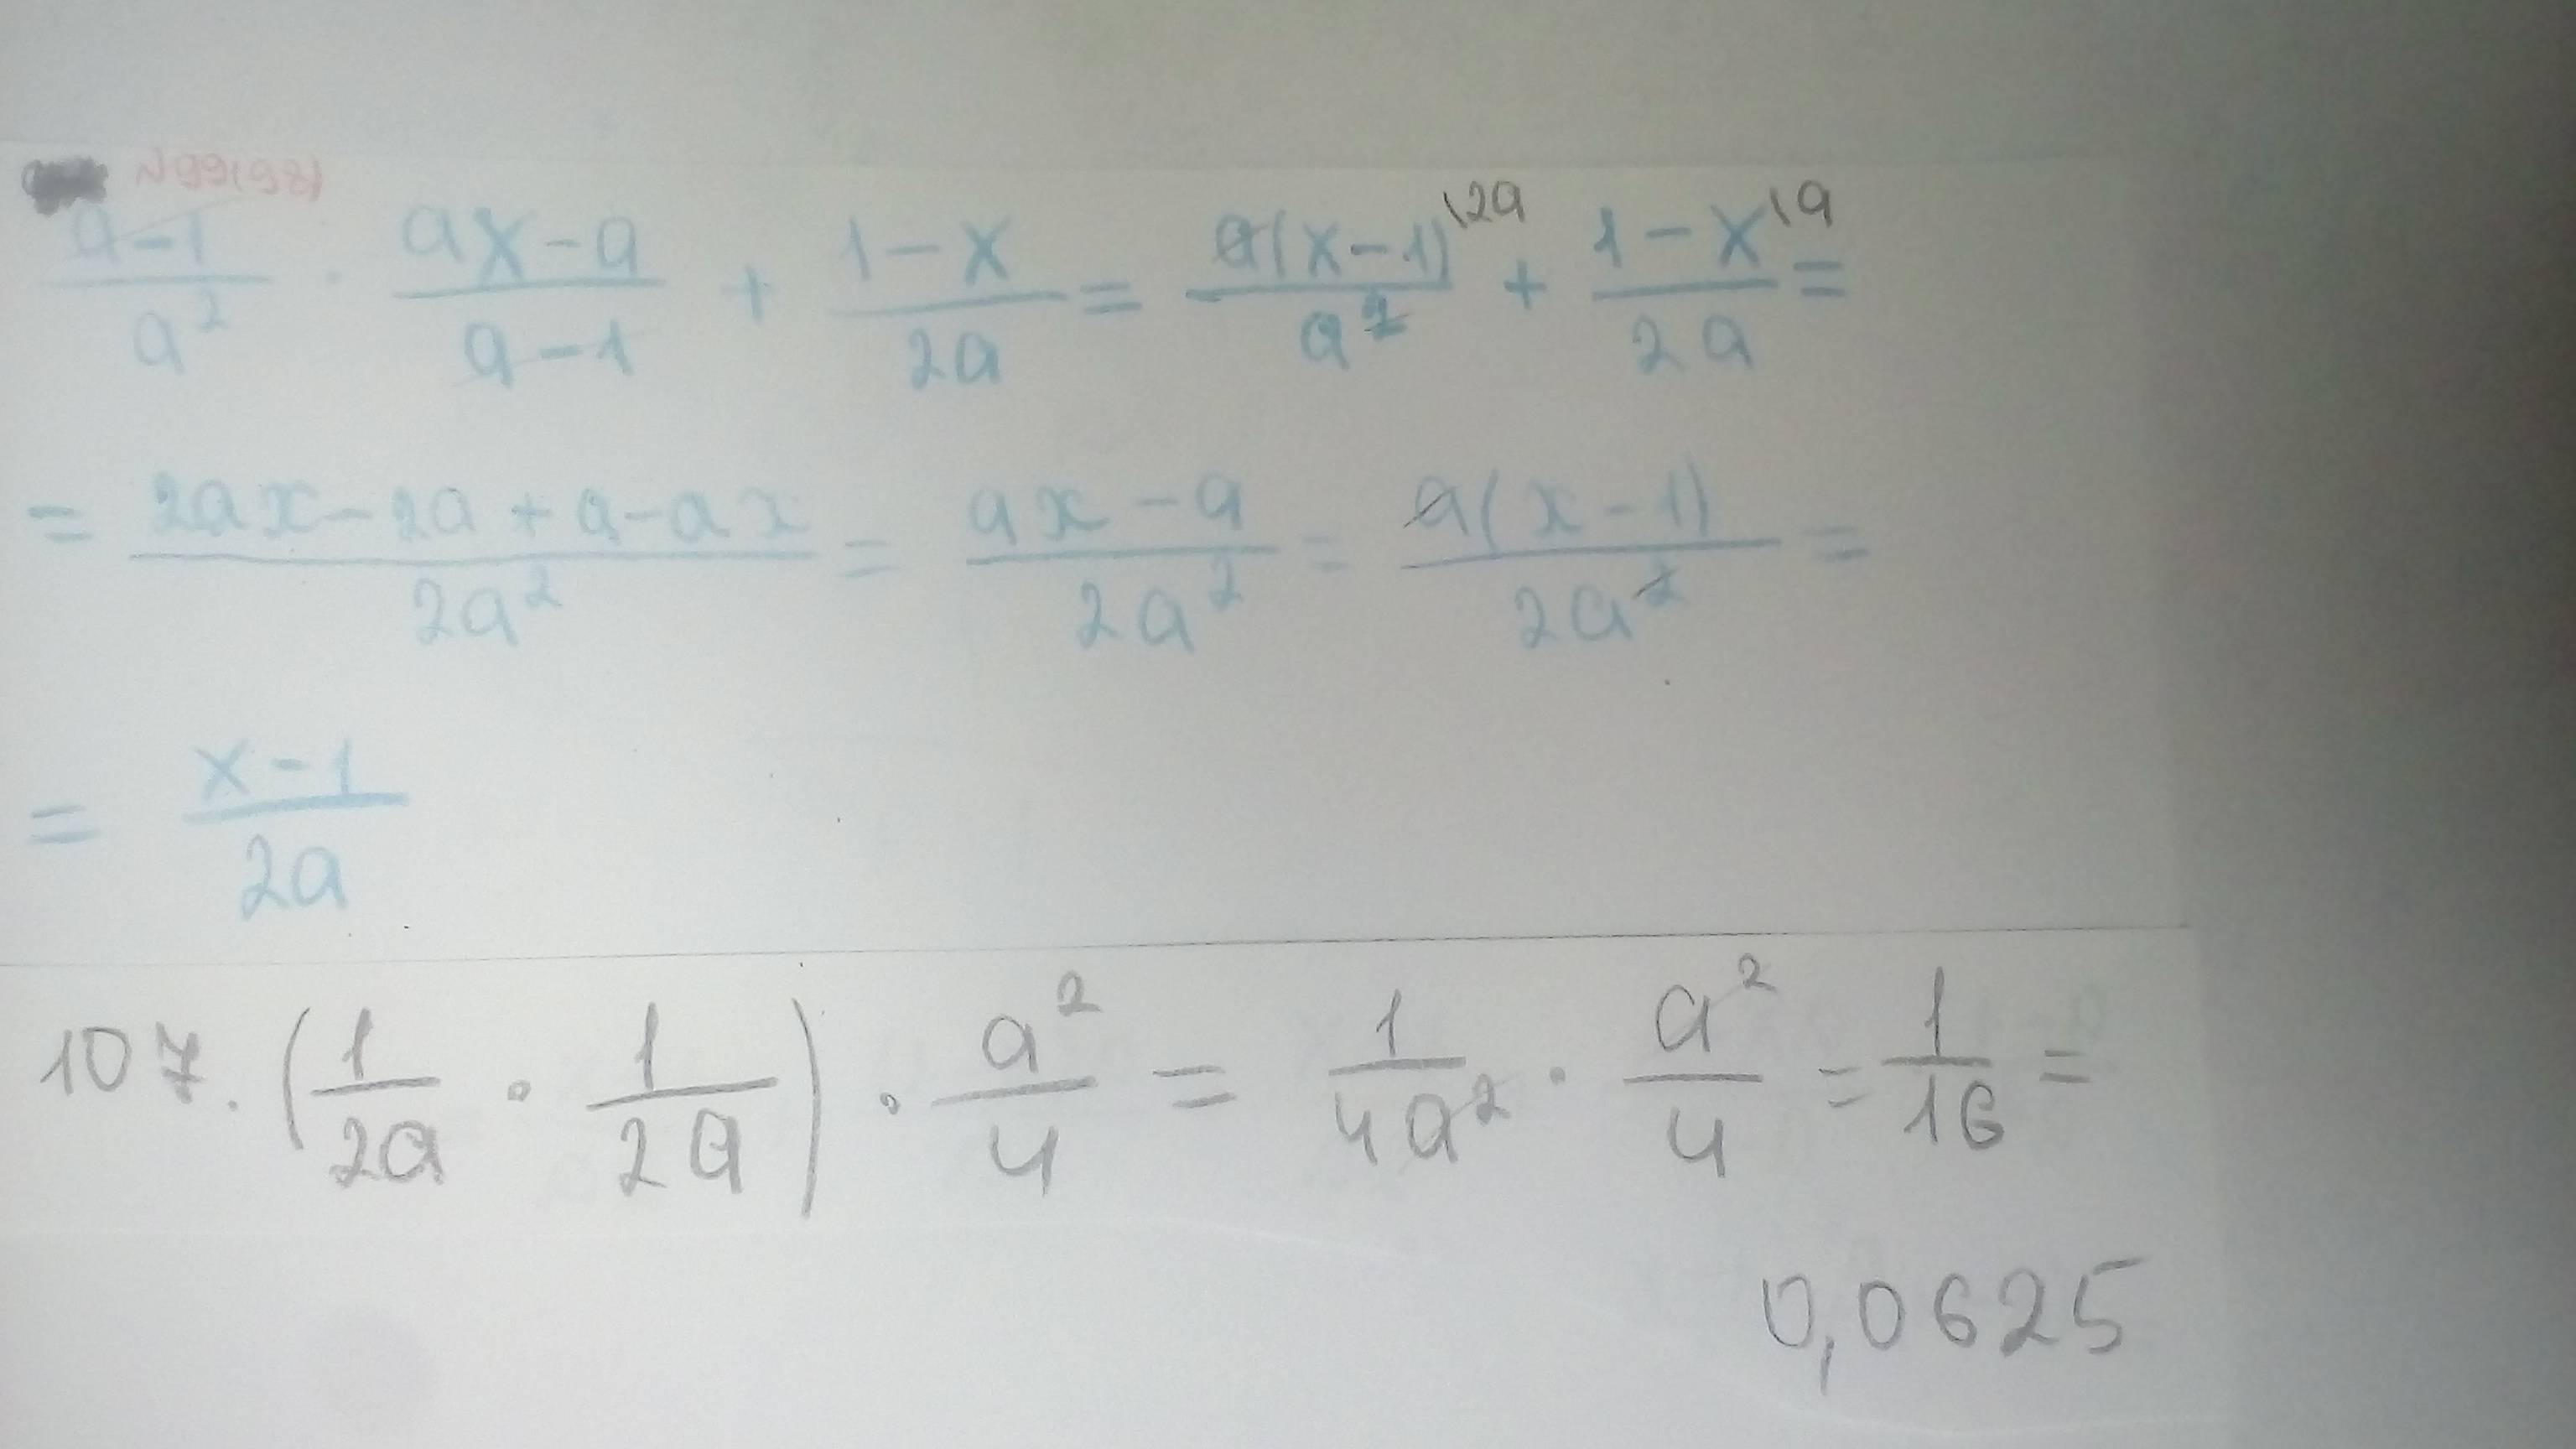 N99(98)
(a-1)/a² · (ax-a)/(a-1) + (1-x)/2a = a(x-1)\2a/a² + (1-x)\a/2a =
= (2ax-2a+a-ax)/2a² = (ax-a)/2a² = a(x-1)/2a² =
= (x-1)/2a
107. (1/2a · 1/2a) · a²/4 = 1/4a² · a²/4 = 1/16 =
0,0625